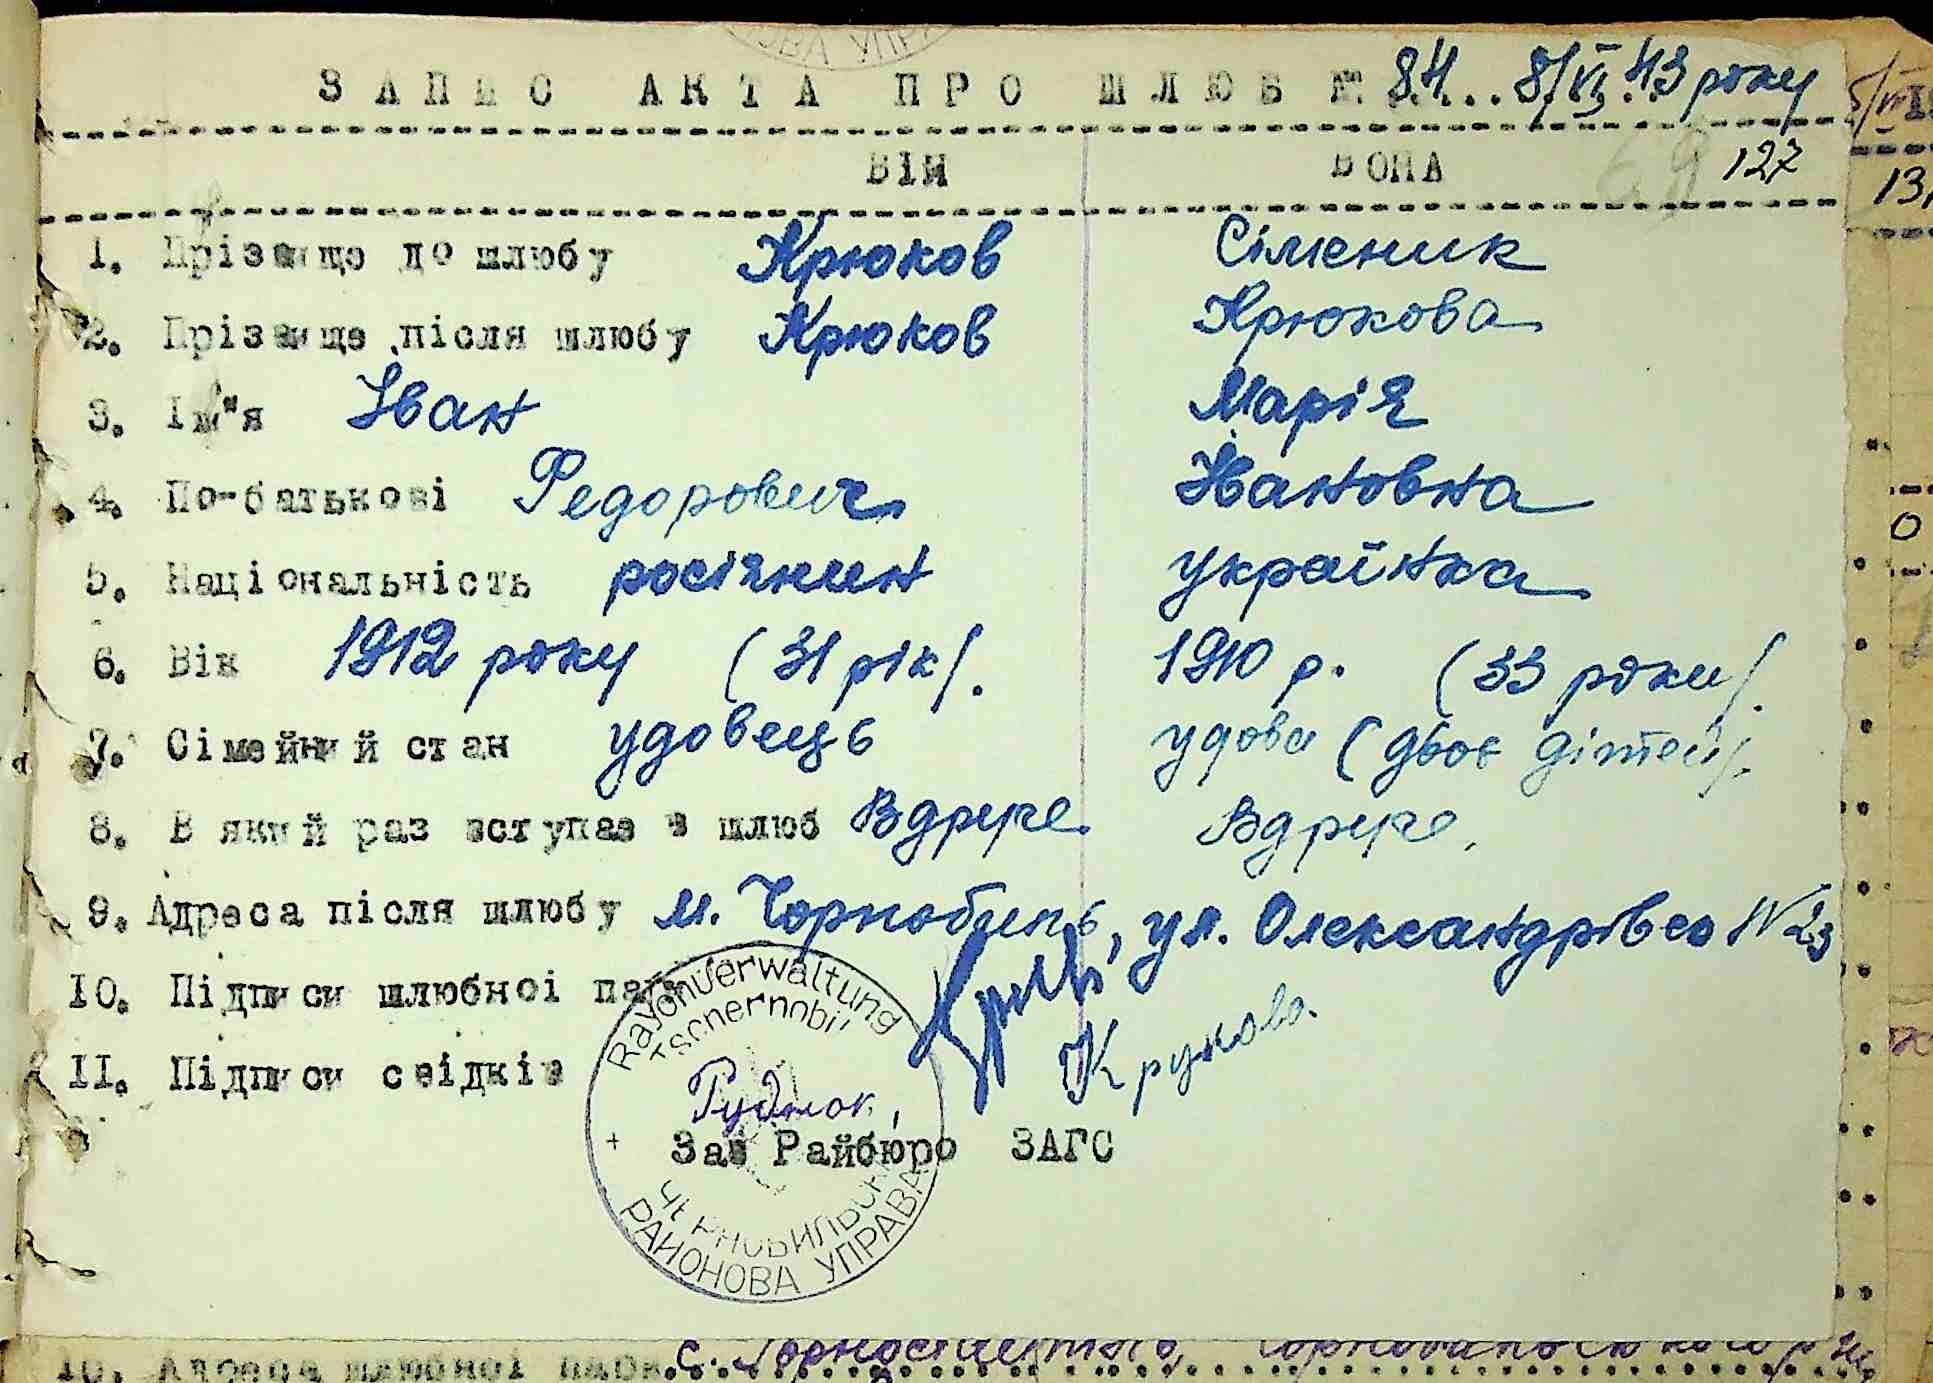 ОВА УПРА
ЗАПИС АКТА ПРО ШЛЮБ № 84... 8/VI.43 року
ВІН ВОНА 127
1. Прізвище до шлюбу Крюков Сіменик
2. Прізвище після шлюбу Крюков Крюкова
3. Ім"я Іван Марія
4. По-батькові Федорович Івановна
5. Національність росіянин українка
6. Вік 1912 року (31 рік). 1910 р. (33 роки).
7. Сімейний стан удовець удова (двоє дітей).
8. В який раз вступає в шлюб Вдруге Вдруге.
9. Адреса після шлюбу м. Чорнобиль, ул. Олександрівсо N 23
10. Підписи шлюбної пари
Крукова
11. Підписи свідків
Rayonverwaltung
Tschernobil
Рудюк,
Зав Райбюро ЗАГС
ЧЕРНОБИЛЬСЬКА
РАЙОНОВА УПРАВА
10. Адреса шлюбної пари с.